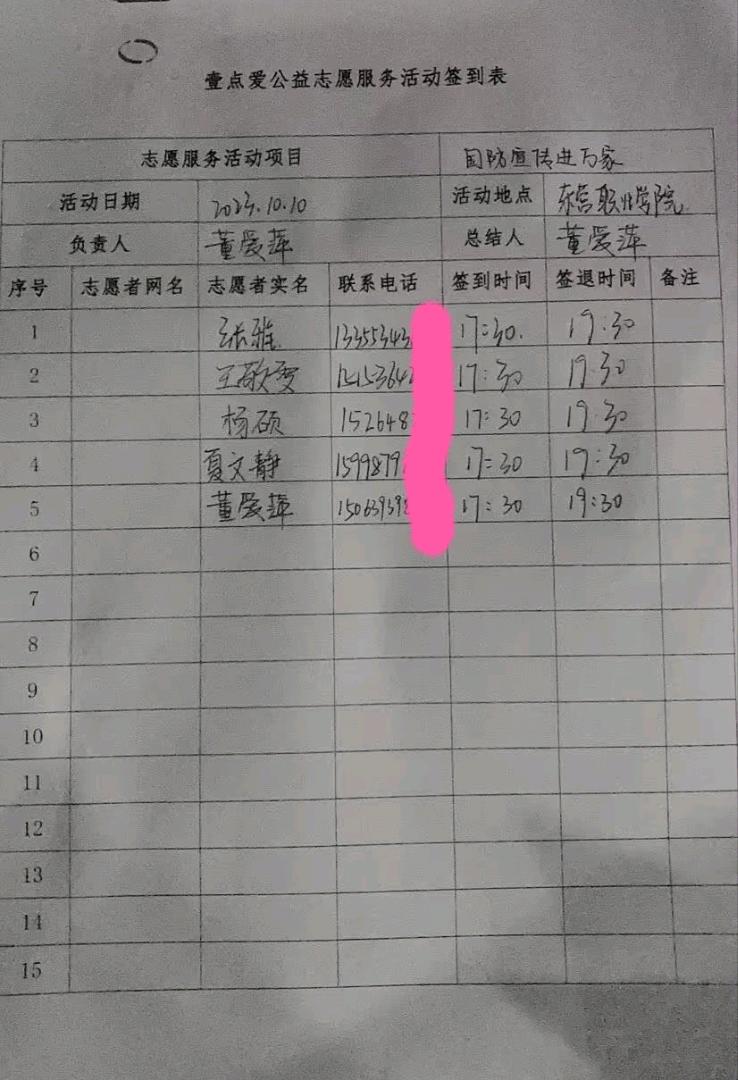 壹点爱公益志愿服务活动签到表
志愿服务活动项目 国防宣传进万家
活动日期 2023.10.10 活动地点 东营职业学院
负责人 董爱萍 总结人 董爱萍
序号 志愿者网名 志愿者实名 联系电话 签到时间 签退时间 备注
1 张雅 13355343 17:30. 19:30
2 王歌雯 17:30 19:30
3 杨硕 152648 17:30 19:30
4 夏文静 1599879 17:30 19:30
5 董爱萍 15063939 17:30 19:30
6
7
8
9
10
11
12
13
14
15